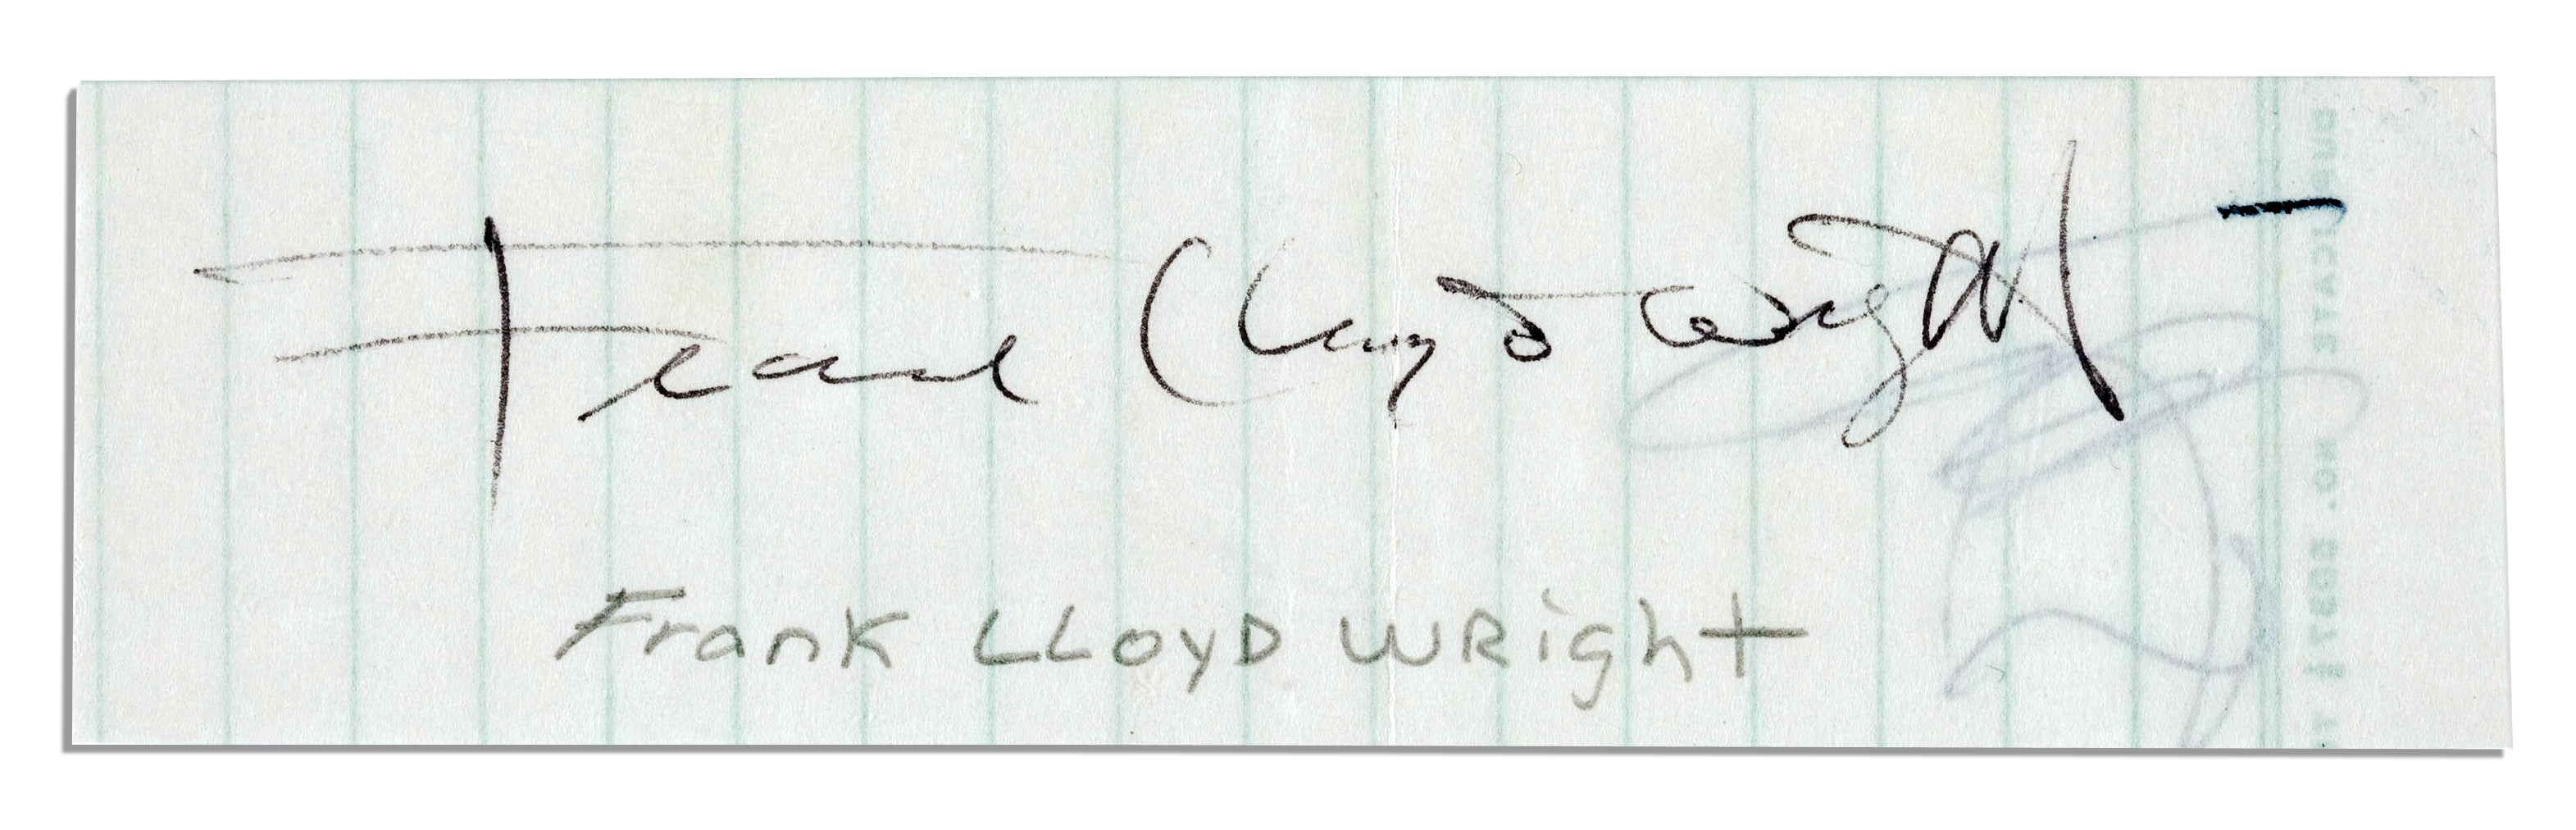 Frank Lloyd Wright
Frank LLOYD WRight